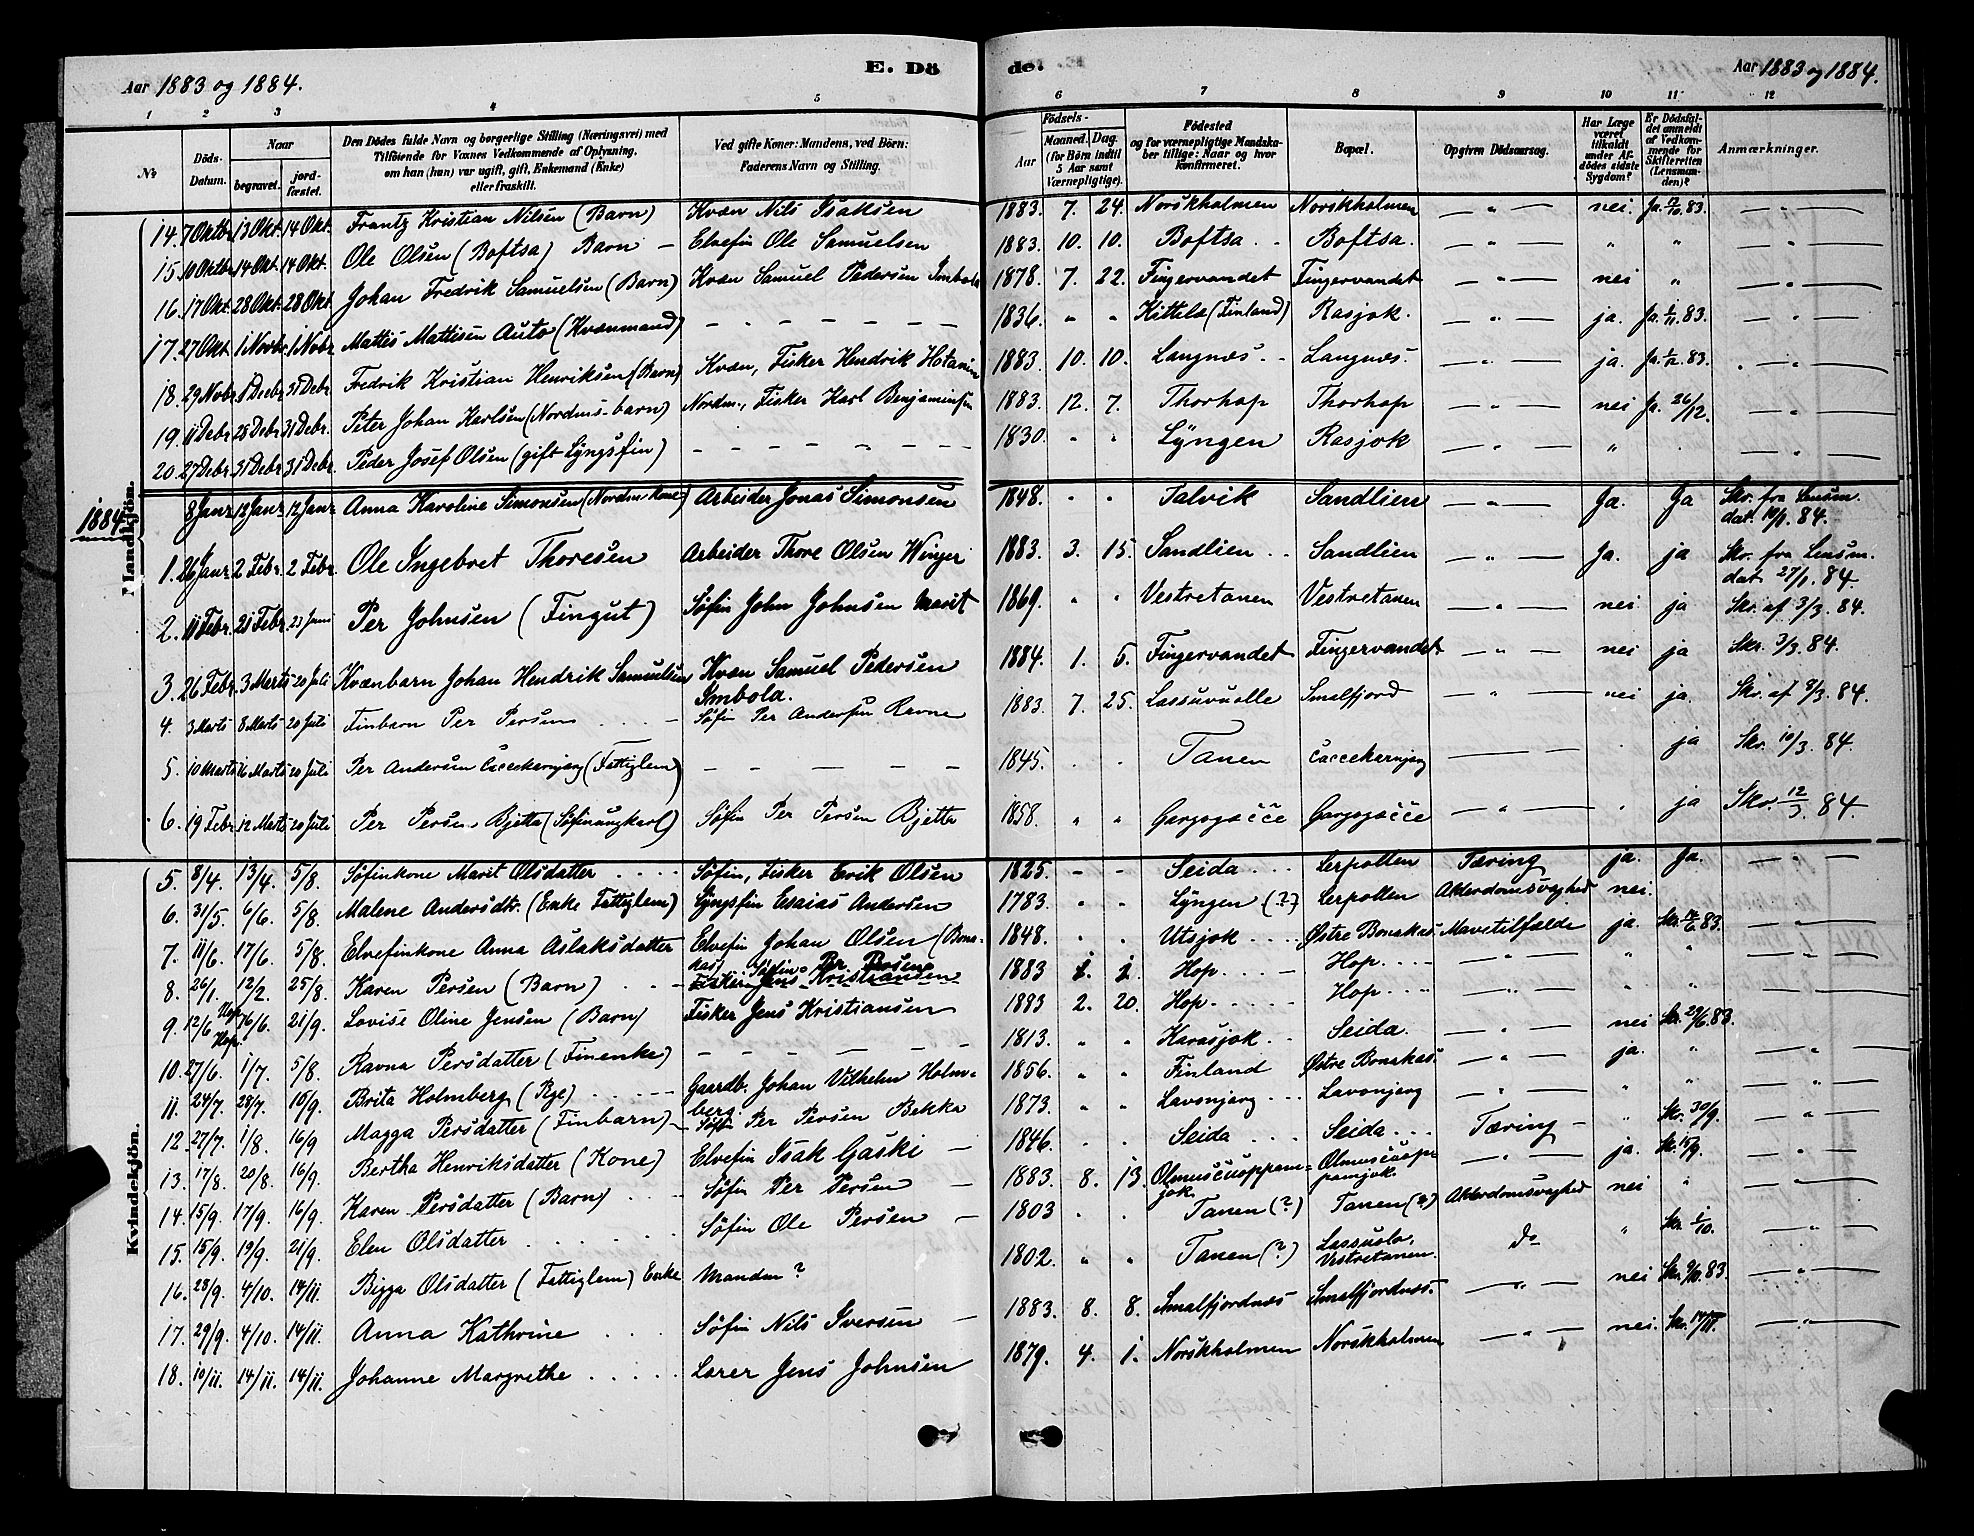 Aar 1883 og 1884.
E. Dö de.
Aar 1883 og 1884.
1 2 3 4 5 6 7 8 9 10 11 12
No
Döds-Datum.
Naar
begravet.
jord-fæstet.
Den Dödes fulde Navn og borgerlige Stilling (Næringsvei) med
Tilföiende for Voxnes Vedkommende af Oplysning,
om han (hun) var ugift, gift, Enkemand (Enke)
eller fraskilt.
Ved gifte Koner: Mandens, ved Börn:
Faderens Navn og Stilling.
Födsels-
Aar
Maaned. Dag.
(for Börn indtil
5 Aar samt
Værnepligtige).
Födested
og for værnepligtige Mandska-
ber tillige: Naar og hvor
konfirmeret.
Bopæl.
Opgiven Dödsaarsag.
Har Læge
været
tilkaldt
under Af-
dödes sidste
Sygdom?
Er Dödsfal-
det anmeldt
af Vedkom-
mende for
Skifteretten
(Lensman-
den)?
Anmærkninger.
Mandkjön.
14. 7 Oktbr. 13 Okt. 14 Okt. Frantz Kristian Nilsen (Barn) Kvæn Nils Isaksen 1883. 7. 24. Norskholmen Norskholmen — " — nei. Ja. 12/10 83. — " —
15. 10 Oktbr. 14 Okt. 14 Okt. Ole Olsen (Boftsa) Barn — Elvefin Ole Samuelsen 1883. 10. 10. Boftsa . . Boftsa. — " — " " — " —
16. 17 Okt. 28 Okt. 28 Okt. Johan Fredrik Samuelsen (Barn) Kvæn Samuel Pedersen Imbola 1878. 7. 22. Fingervandet Fingervandet — " — nei " — " —
17. 27 Okt. 1 Novbr. 1 Novbr. Mattis Mattisen Auto (Kvænmand) — — — — 1836. " " Kittila (Finland) Rasjok. — " — ja. Ja. 1/11. 83. — " —
18. 29 Novbr. 1 Decbr. 31 Debr. Fredrik Kristian Henriksen (Barn) Kvæn, Fisker Hendrik Hotanin 1883. 10. 10. Langnæs . . Langnæs. — " — ja. Ja. 1/12. 83. — " —
19. 11 Debr. 28 Debr. 31 Debr. Peter Johan Karlsen (Nordms-barn) Nordm., Fisker Karl Benjaminsen 1883. 12. 7. Thorhop Thorhop — " — nei Ja. 26/12. — " —
20. 27 Debr. 31 Debr. 31 Debr. Peder Josef Olsen (gift Lyngsfin) — — — — 1830. " " Lyngen Rasjok — " — " " — " —
1884
8 Janr. 12 Janr. 12 Janr. Anna Karoline Simonsen (Nordm Kone) Arbeider Jonas Simonsen 1848. " " Talvik Sandlien — " — Ja. Ja Skr. fra Lensm.
dat. 10/1. 84.
1. 26 Janr. 2 Febr. 2 Febr. Ole Ingebret Thoresen Arbeider Thore Olsen Winger 1883. 3. 15. Sandlien . . Sandlien — " — Ja. ja Skr. fra Lensm.
dat. 27/1. 84.
2. 11 Febr. 21 Febr. 23 Juni Per Johnsen (Fingut) Søfin John Johnsen Marit 1869. " " Vestretanen Vestretanen — " — nei ja Skr. af 3/3. 84.
3. 26 Febr. 3 Marts 20 Juli Kvænbarn Johan Hendrik Samuelsen Kvæn Samuel Pedersen
Imbola. 1884. 1. 5. Fingervandet Fingervandet — " — nei ja Skr. 3/3. 84.
4. 3 Marts 8 Marts 20 Juli Finbarn Per Persen . . . — Søfin Per Andersen Ravna 1883. 7. 25. Lassuvuolle Smalfjord — " — nei ja. Skr. af 8/3. 84.
5. 10 Marts 16 Marts 20 Juli Per Andersen (Fattiglem) — — — — 1845. " " Tanen — — ja Skr. 10/3. 84.
6. 19 Febr. 12 Marts 20 Juli Per Persen Bjetta (Søfinungkarl) Søfin Per Persen Bjetta 1858. " " Gargogæcce Gargogæcce — " — . ja Skr. 12/3. 84.
Kvindekjön.
5. 8/4. 13/4. 5/8. Søfinkone Marit Olsdatter . . . . Søfin, Fisker Erik Olsen 1825. - - Seida . . . Lerpollen Tæring ja. Ja. — " —
6. 31/5. 6/6. 5/8. Malene Andersdtr. (Enke Fattiglem) Lyngsfin Esaias Andersen 1783. " " Lyngen (?) Lerpollen Alderdomsvaghed nei.
7. 11/6. 17/6. 5/8. Elvefinkone Anna Aslaksdatter Elvefin Johan Olsen (Bona-
kas) 1848. " " Utsjok . . . Østre Bonakas. Mavetilfælde ja. Skr. 14/6. 83. — " —
8. 26/1. 12/2. 25/8. Karen Persen (Barn) . . — Søfin Per Persen Fisker Jens Kristiansen 1883 1. 1. Hop. . . . — Hop. . . . — " — " " — " —
9. 12/6 16/6. 21/9. Lovise Oline Jensen (Barn) Fisker Jens Kristiansen 1883 2. 20. Hop. . . . Hop. . . . — " — " " — " —
10. 27/6. 1/7. 5/8. Ravna Persdatter (Finenke) — — — — 1813. " " Karasjok . . Seida. — " — nei Skr. 29/6. 83.
11. 24/7. 28/7. 10/9. Brita Holmberg (Pge) . . . . Gaardb. Johan Vilhelm Holm-
berg. 1856. " " Finland Østre Bonakas. — " — ja. " — " —
12. 27/7. 1/8. 16/9 Magga Persdatter (Finbarn) — Søfin Per Persen Bekka 1873. " " Lavonjerg . . . Lavonjerg — " — " " — " —
13. 17/8. 20/8. 16/9. Bertha Henriksdatter (Kone) Elvefin Isak Gaski — 1846. " " Seida . . . Seida . . . Tæring — " Skr. 30/9. — " —
14. 15/9. 17/9. 16/9. Karen Persdatter (Barn) . . . Søfin Per Persen — 1883. 8. 13. Olmuscuoppam-
jok. — " — ja. Skr. 15/9. — " —
15. 15/9. 19/9. 21/9. Elen Olsdatter . . . . . . . Søfin Ole Persen — 1803 . . Tanen (?) Tanen (?) Alderdomsvaghed nei " — " —
16. 28/9. 4/10. 14/11. Bigga Olsdatter (Fattiglem) Enke Manden ? 1802. " " Tanen (?) Vestretanen. do " Skr. 1/10. — " —
17. 29/9. 4/10. 14/11. Anna Kathrine . . . Søfin Nils Iversen — 1883. 8. 8. Smalfjordnæs Smalfjordnæs. — " — nei Skr. 9/10. 83. — " —
18. 10/11. 14/11. 14/11. Johanne Margrethe . . . . . Lærer Jens Johnsen 1879. 4. 1. Norskholmen Norskholmen — " — nei. Skr. 14/11. — " —